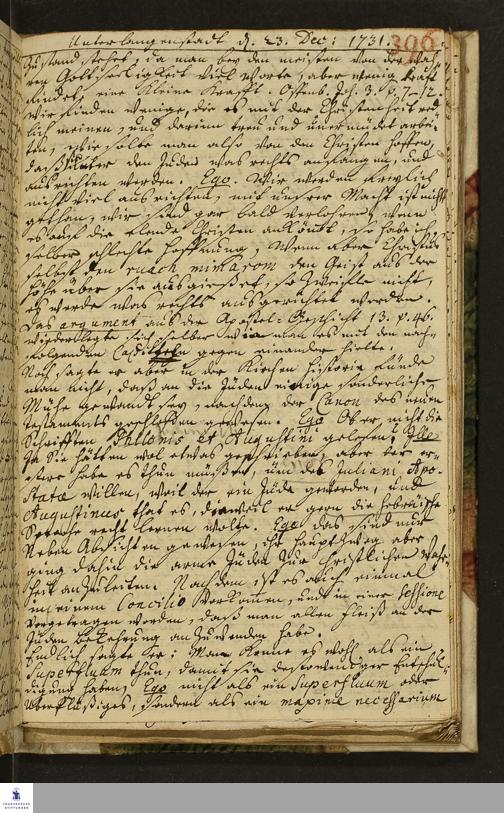 Unterlangenstadt d. 23. Dec: 1731.
396
Zustand stehet, da man bey den meisten von der wah-
ren Gottseeligkeit viel Worte, aber wenig Krafft
findet, eine kleine Krafft. Offenb. Joh. 3. v. 7-12.
Wir finden wenige, die es mit der Christenheit red-
lich meinen, und darum treu und unermüdet arbei-
ten, wie solte man also von den Christen hoffen,
daß sie unter den Juden was rechts anfangen, und
ausrichten werden. Ego. Wir werden freylich
nicht viel ausrichten, mit unsrer Macht ist nichts
gethan, wir sind gar bald verlohren, wenn
es auf die elende Christen ankömt, so habe ich
selber schlechte Hoffnung, Wenn aber Christus
selbst den ruach mimarom den Geist aus der
Höhe über sie ausgießet, so zweifle nicht,
es werde was rechts ausgerichtet werden.
Das argument aus der Apostel-Geschicht 13. v. 46.
wiederlegte sich selber wie man es mit den nach-
folgenden Capitteln gegen einander hielte.
Noch sagte er aber in der Kirchen Historie fünde
man nicht, daß an die Juden einige sonderliche
Mühe gewandt sey, nachdem der Canon des neuen
Testaments geschlossen gewesen. Ego Ob er nicht die
Schrifften Philonis et Augustini gelesen? Ille
Ja Sie hätten wol etwas geschrieben, aber der er-
stere habe es thun müssen, um des Juliani Apo-
statæ willen, weil der ein Jude geworden, und
Augustinus that es, dieweil er gern die hebräische
Sprache recht lernen wolte. Ego das sind nur
Neben Absichten gewesen, ihr Haupt Zweg aber
ging dahin die arme Juden zur Christlichen Wahr-
heit anzuleiten. Nachdem ist es auch einmal
in einem Concilio vorkomen, und in einer Sessione
vorgetragen worden, daß man allen Fleiß an der
Juden Bekehrung anzuwenden habe.
Endlich sagte Er: Man könne es wohl als ein
Superfluum thun, damit sie desto weniger Entschul-
digung haben, Ego nicht als ein Superfluum oder
überflüßiges, sondern als ein maxime necessarium
FRANCKESCHE STIFTUNGEN